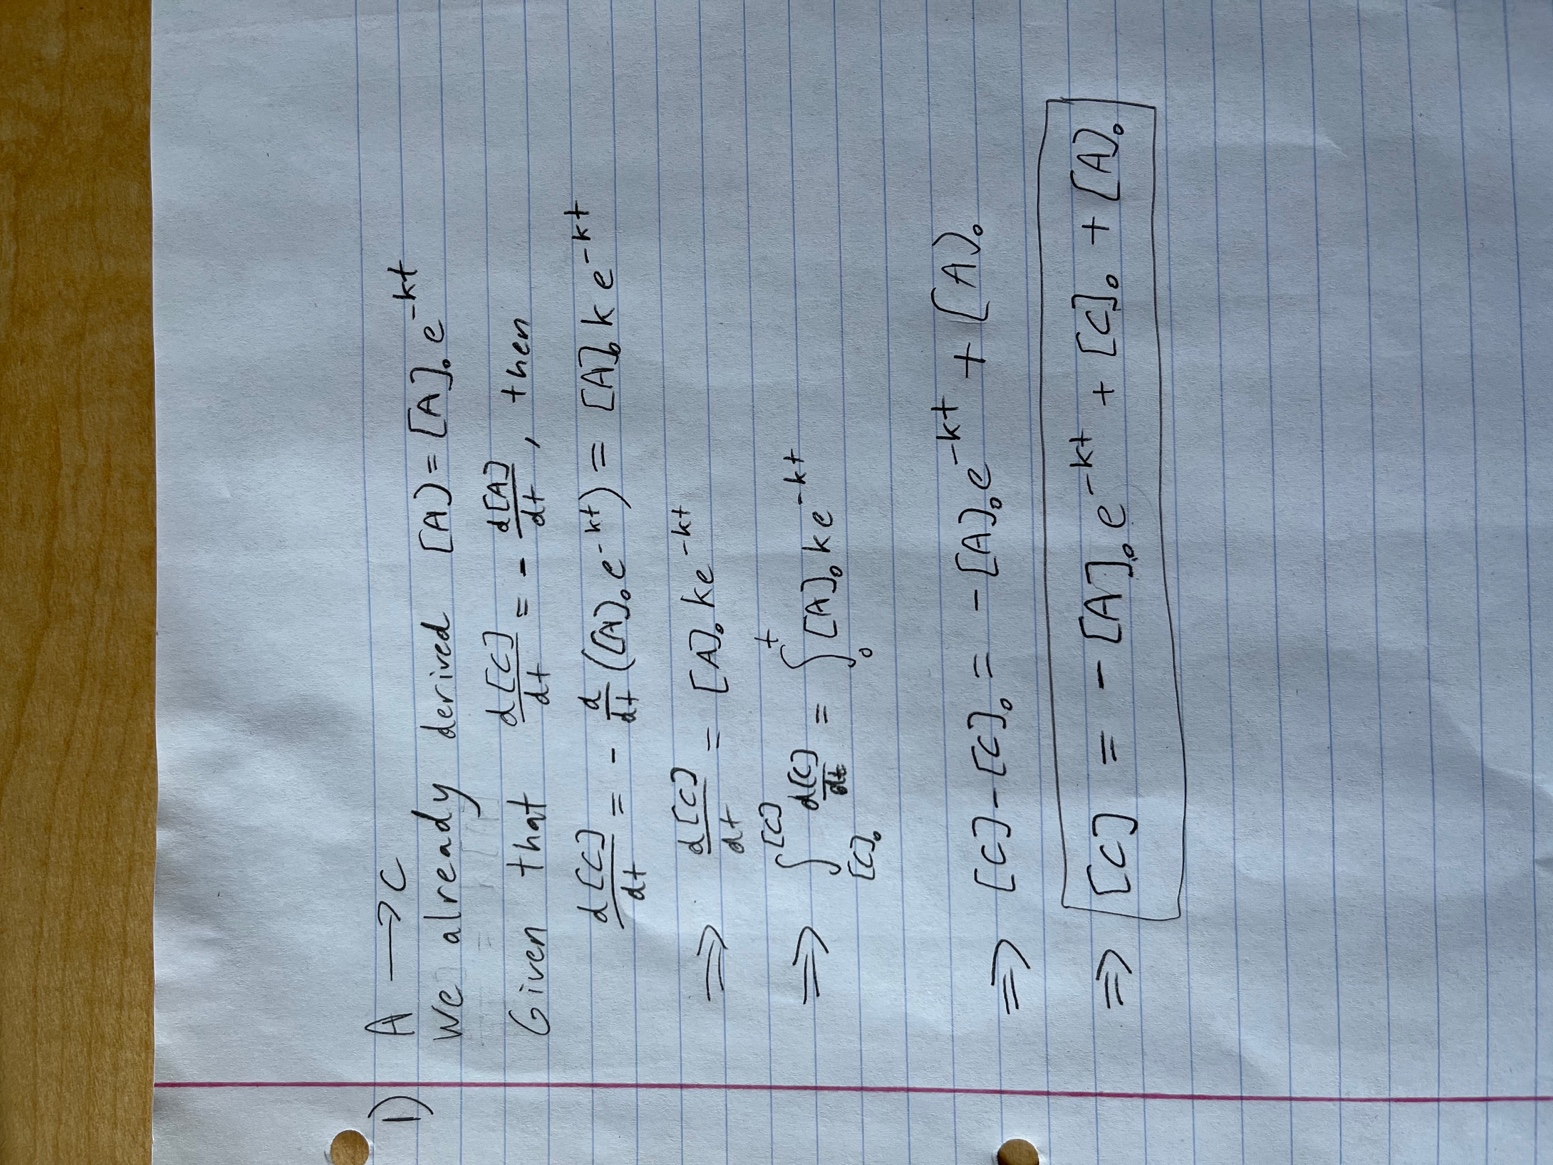 1) A → C
We already derived [A] = [A]₀e^(-kt)
Given that d[C]/dt = - d[A]/dt, then
d[C]/dt = - d/dt([A]₀e^(-kt)) = [A]₀ke^(-kt)
⇒ d[C]/dt = [A]₀ke^(-kt)
⇒ ∫_([C]₀)^([C]) d[C] = ∫_0^t [A]₀ke^(-kt)
⇒ [C]-[C]₀ = -[A]₀e^(-kt) + [A]₀
⇒ [C] = -[A]₀e^(-kt) + [C]₀ + [A]₀